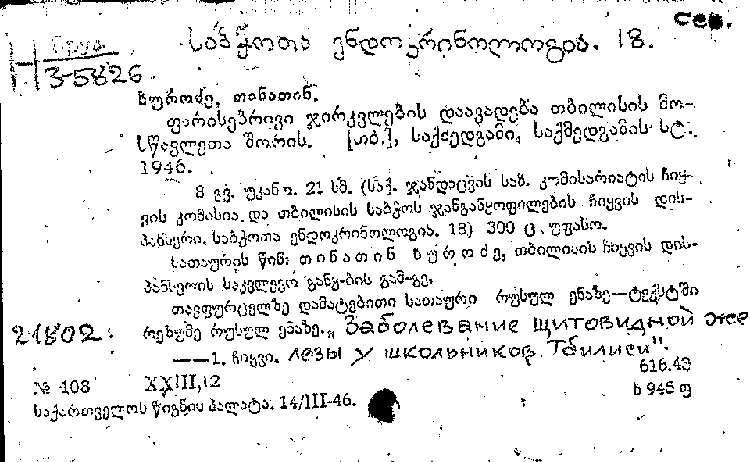 Сев.
Груз
საბჭოთა ენდოკრინოლოგია. 18.
Н 3-5826
ხუროძე, თინათინ.
ფარისებრივი ჯირკვლების დაავადება თბილისის მო-
სწავლეთა შორის. [თბ.], საქმედგამი, საქმედგამის სტ.
1946.
8 გვ. უკან ყ. 21 სმ. (საქ. ჯანდაცვის სახ. კომისარიატის ჩიყ-
ვის კომისია და თბილისის საბჭოს ჯანგანყოფილების ჩიყვის დის-
პანსერი. საბჭოთა ენდოკრინოლოგია. 18) 300 ც. უფასო.
სათაურის წინ: თინათინ ხუროძე, თბილისის ჩიყვის დის-
პანსერის საკვლევი განყ-ბის გამ-გე.
თავფურცელზე დამატებითი სათაური რუსულ ენაზე—ტექსტში
21802. რეზუმე რუსულ ენაზე. „Заболевание щитовидной же
——1. ჩიყვი. лезы у школьников Тбилиси".
616.43
№ 108 XXIII,12
ხ 945 ფ
საქართველოს წიგნის პალატა. 14/III-46.